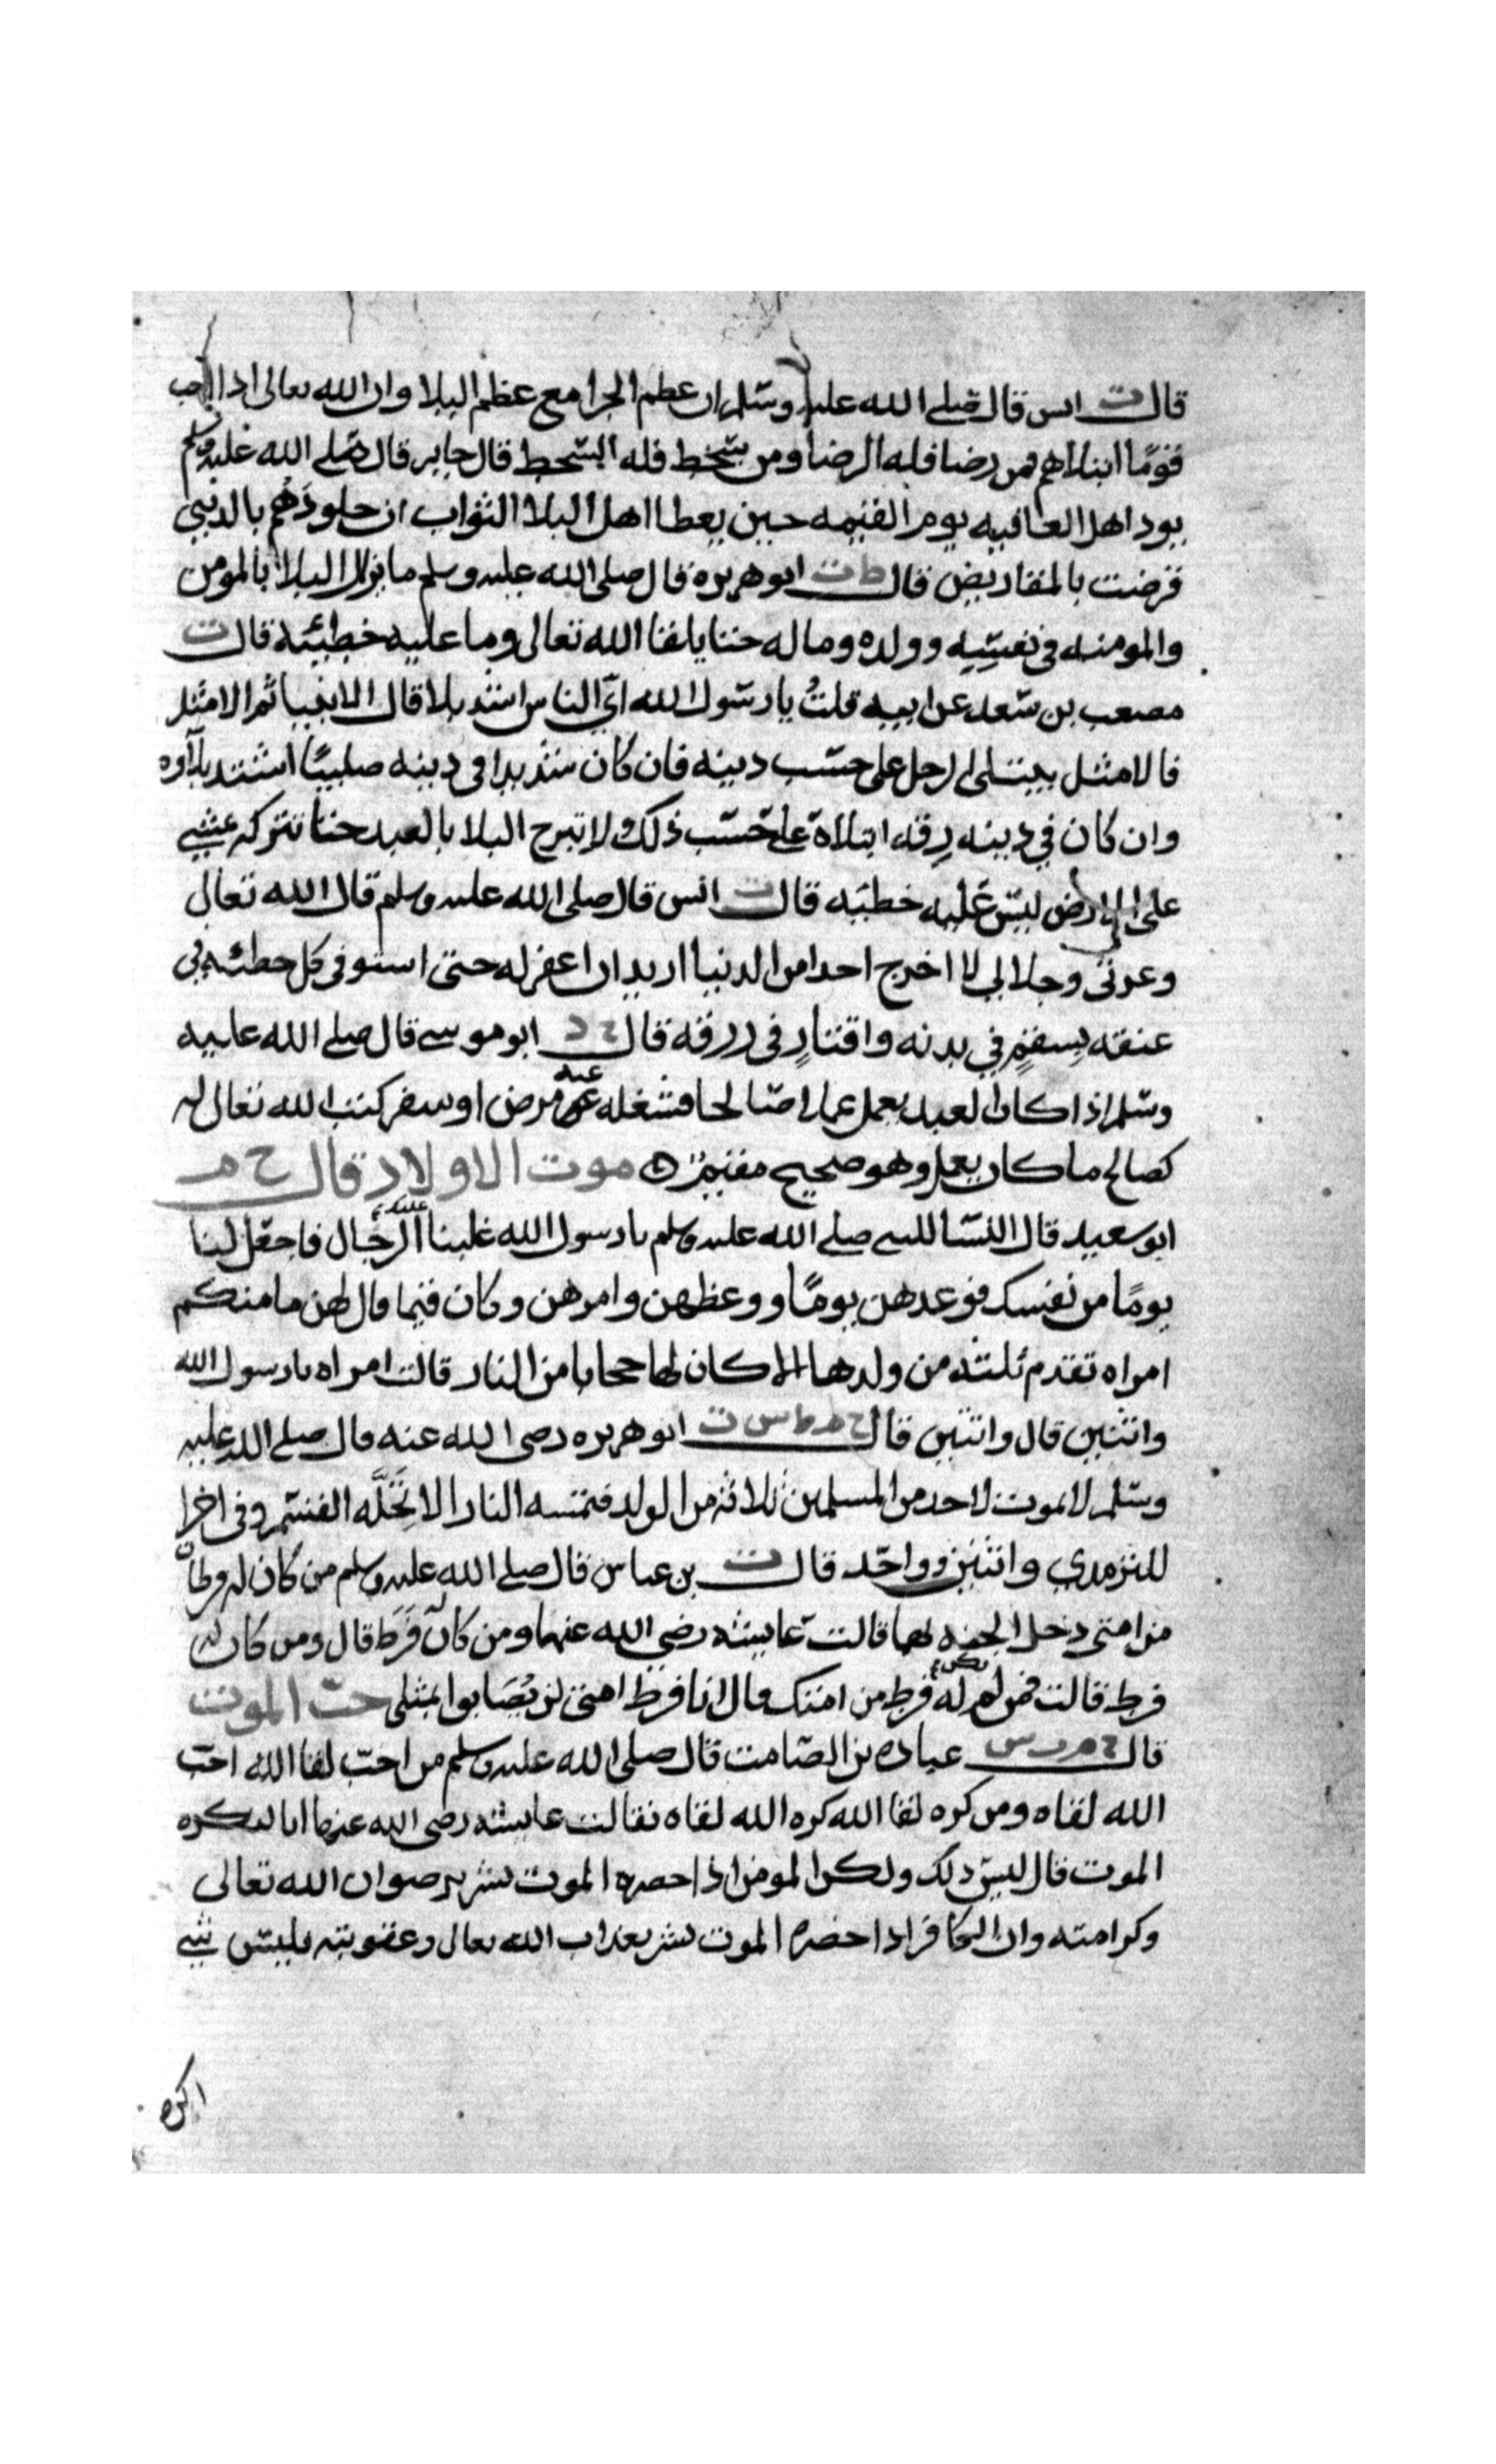 قال ت انس قال صلى الله عليه وسلم ان عظم الجزا مع عظم البلا وان الله تعالى اذا احب
قومًا ابتلاهم فمن رضا فله الرضا ومن سخط فله السخط قال جابر قال صلى الله عليه وسلم
يود اهل العافيه يوم القيمه حين يعطا اهل البلا الثواب ان جلودهم بالدنيى
قرضت بالمقاريض قال ط ت ابو هريره قال صلى الله عليه وسلم ما يزال البلا بالمومن
والمومنه في نفسه وولده وماله حتا يلقا الله تعالى وما عليه خطيئة قال ت
مصعب بن سعد عن ابيه قلتُ يا رسول الله اي الناس اشد بلا قال الانبيا ثم الامثل
فالامثل يبتلى الرجل على حسب دينه فان كان شديدا في دينه صليبًا اشتد بلآوه
وان كان في دينه رقه ابتلاه على حسب ذلك ولا تبرح البلا بالعبد حتا تتركه يمشي
على الارض ليس عليه خطيه قال ت انس قال صلى الله عليه وسلم قال الله تعالى
وعزتي وجلالي لا اخرج احدا من الدنيا اريد ان اغفر له حتى استوفى كل خطئه في
عنقه بسقم في بدنه واقتار في رزقه قال خ د ابو موسى قال صلى الله عليه
وسلم اذا كان العبد يعمل عملا صالحا فشغله عنه مرض او سفر كتب الله تعالى له
كصالح ما كان يعمل وهو صحيح مقيم موت الاولاد قال خ م
ابو سعيد قال النسا للنبي صلى الله عليه وسلم يا رسول الله غلبنا عليك الرجال فاجعل لنا
يومًا من نفسك فوعدهن يومًا ووعظهن وامرهن وكان فيما قال لهن ما منكم
امراه تقدم ثلثه من ولدها الا كان لها حجابا من النار قالت امراه يا رسول الله
واثنين قال واثنين قال خ م ط س ت ابو هريره رضى الله عنه قال صلى الله عليه
وسلم لا يموت لاحد من المسلمين ثلاثة من الولد فتمسه النار الا تَحِلَّه القسم وفى اخرا
للترمدي واثنين وواحد قال ت بن عباس قال صلى الله عليه وسلم من كان له فرطان
من امتي دخل الجنه بهما قالت عايشه رضي الله عنها ومن كان له فرط قال ومن كان له
فرط قالت فمن لم يكن له فرط من امتك قال انا فرط امتي لن يُصَابوا بمثلى حبّ الموت
قال خ م ت س عباده بن الصامت قال صلى الله عليه وسلم من احب لقا الله احب
الله لقاه ومن كره لقا الله كره الله لقاه فقالت عايشه رضى الله عنها انا لنكره
الموت قال ليس ذلك ولكن المومن اذا حضره الموت بشر برضوان الله تعالى
وكرامته وان الكافر اذا حضره الموت بشر بعذاب الله تعالى وعقوبته فليس شي
اكره